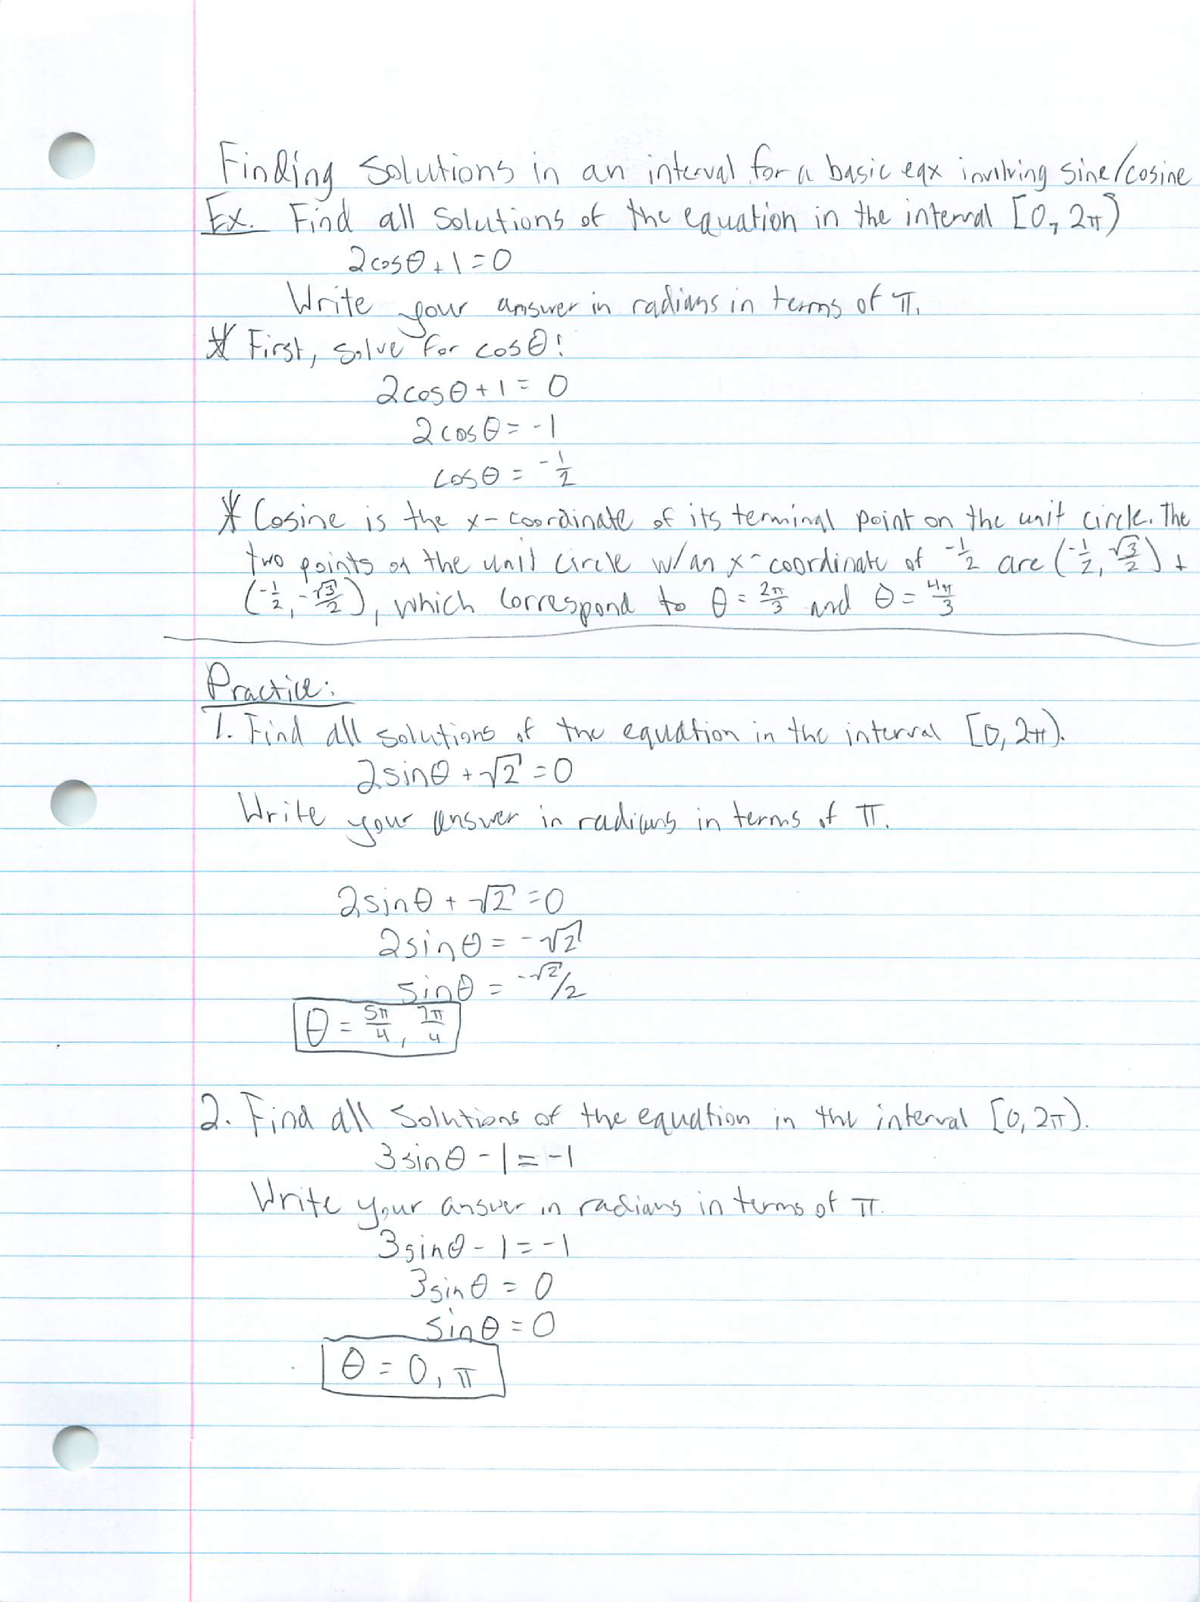 Finding Solutions in an interval for a basic eqx involving sine/cosine
Ex. Find all solutions of the equation in the interval [0, 2π)
2cosθ+1=0
Write your answer in radians in terms of π.
* First, solve for cosθ!
2cosθ+1=0
2cosθ=-1
cosθ = -1/2
* Cosine is the x-coordinate of its terminal point on the unit circle. The
two points on the unit circle w/an x-coordinate of -1/2 are (-1/2, √3/2) +
(-1/2, -√3/2), which correspond to θ = 2π/3 and θ = 4π/3
Practice:
1. Find all solutions of the equation in the interval [0, 2π).
2sinθ + √2 = 0
Write your answer in radians in terms of π.
2sinθ + √2 = 0
2sinθ = -√2
sinθ = -√2/2
θ = 5π/4, 7π/4
2. Find all solutions of the equation in the interval [0, 2π).
3sinθ - 1 = -1
Write your answer in radians in terms of π.
3sinθ - 1 = -1
3sinθ = 0
sinθ = 0
θ = 0, π